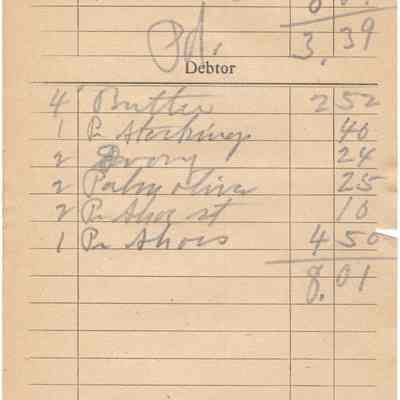 Pd. 3.39
Debtor
4 Butter 2 52
1 Pr Stockings 40
2 Ivory 24
2 Palmolive 25
2 Pr Shoe st 10
1 Pr Shoes 4 50
8.01